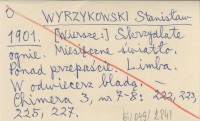 WYRZYKOWSKI Stanisław
1901. [Wiersze:] Skrzydlate
ognie. Miesięczne światło.
Ponad przepaście. Limba.
W odwieczerz bladą. –
Chimera 3, nr 7-8: 222, 223,
225, 227.